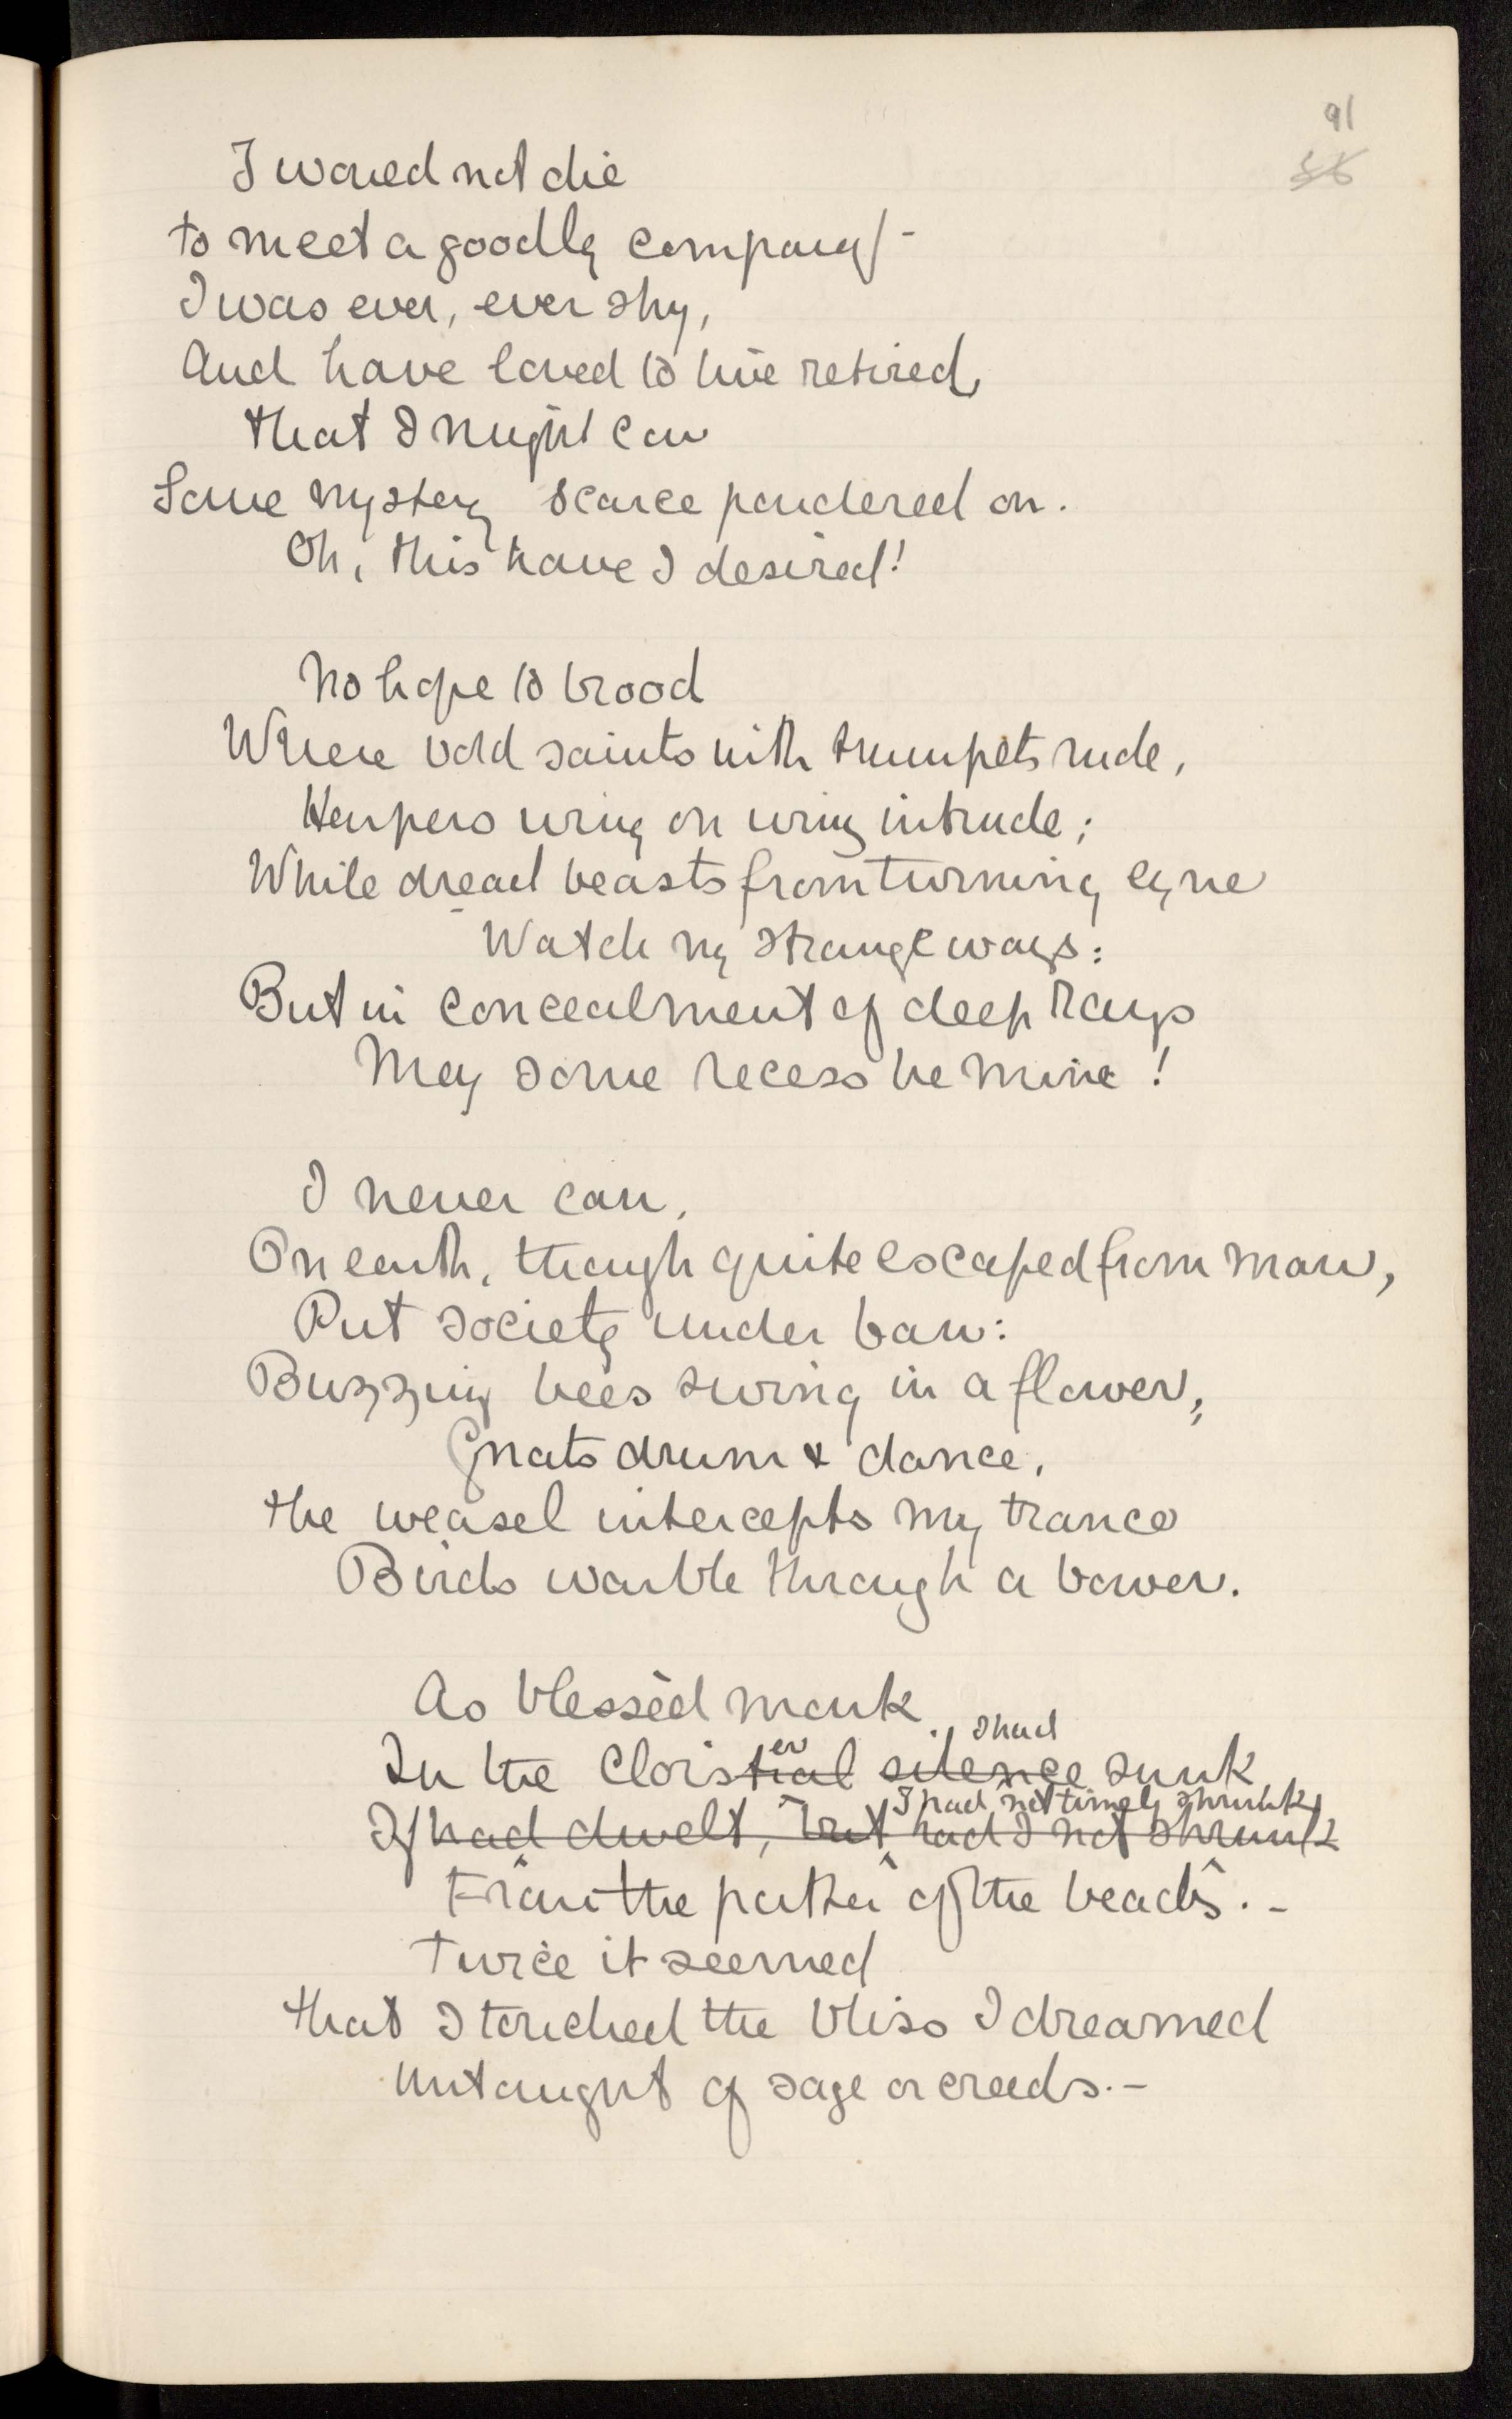 91
56
I would not die
to meet a goodly company -
I was ever, ever shy,
And have loved to live retired,
that I might con
Some mystery scarce pondered on.
Oh, this have I desired!
No hope to brood
Where bold saints with trumpets rude,
Harpers wing on wing intrude;
While dread beasts from turning eyne
Watch my strange ways:
But in concealment of deep rays
May some recess be mine!
I never can,
On earth, though quite escaped from man,
Put society under ban:
Buzzing bees swing in a flower,
Gnats drum & dance,
the weasel intercepts my trance
Birds warble through a bower.
As blessèd monk
er I had
In the cloistral silence sunk
I had not timely shrunk
If had dwelt, but had I not shrunk
From the patter of the beads. -
Twice it seemed
that I touched the bliss I dreamed
Untaught of sage or creeds. -